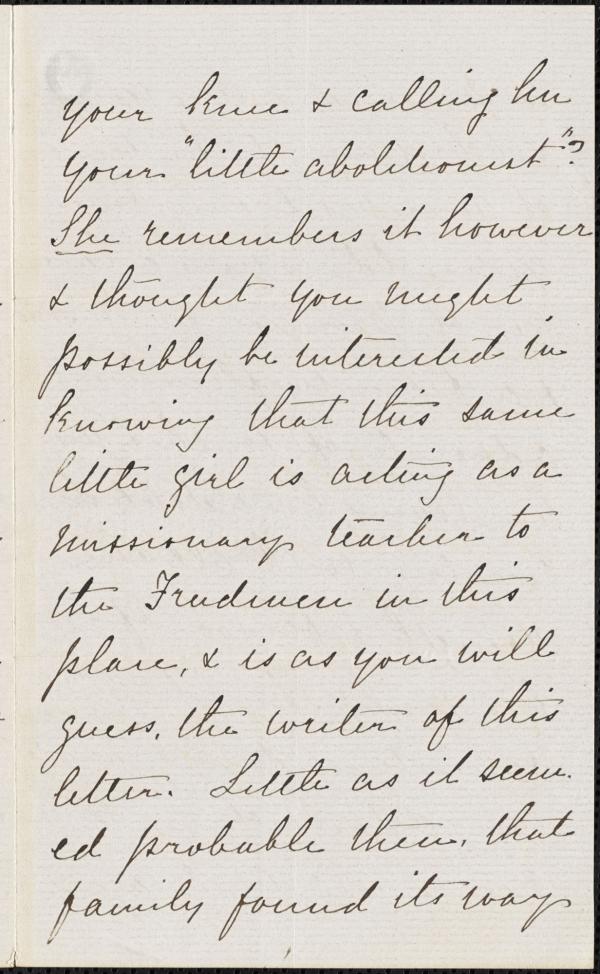 your knee & calling her
your "little abolitionist"?
She remembers it however
& thought you might
possibly be interested in
knowing that this same
little girl is acting as a
missionary teacher to
the Freedmen in this
place, & is as you will
guess, the writer of this
letter. Little as it seem-
ed probable then, that
family found its way